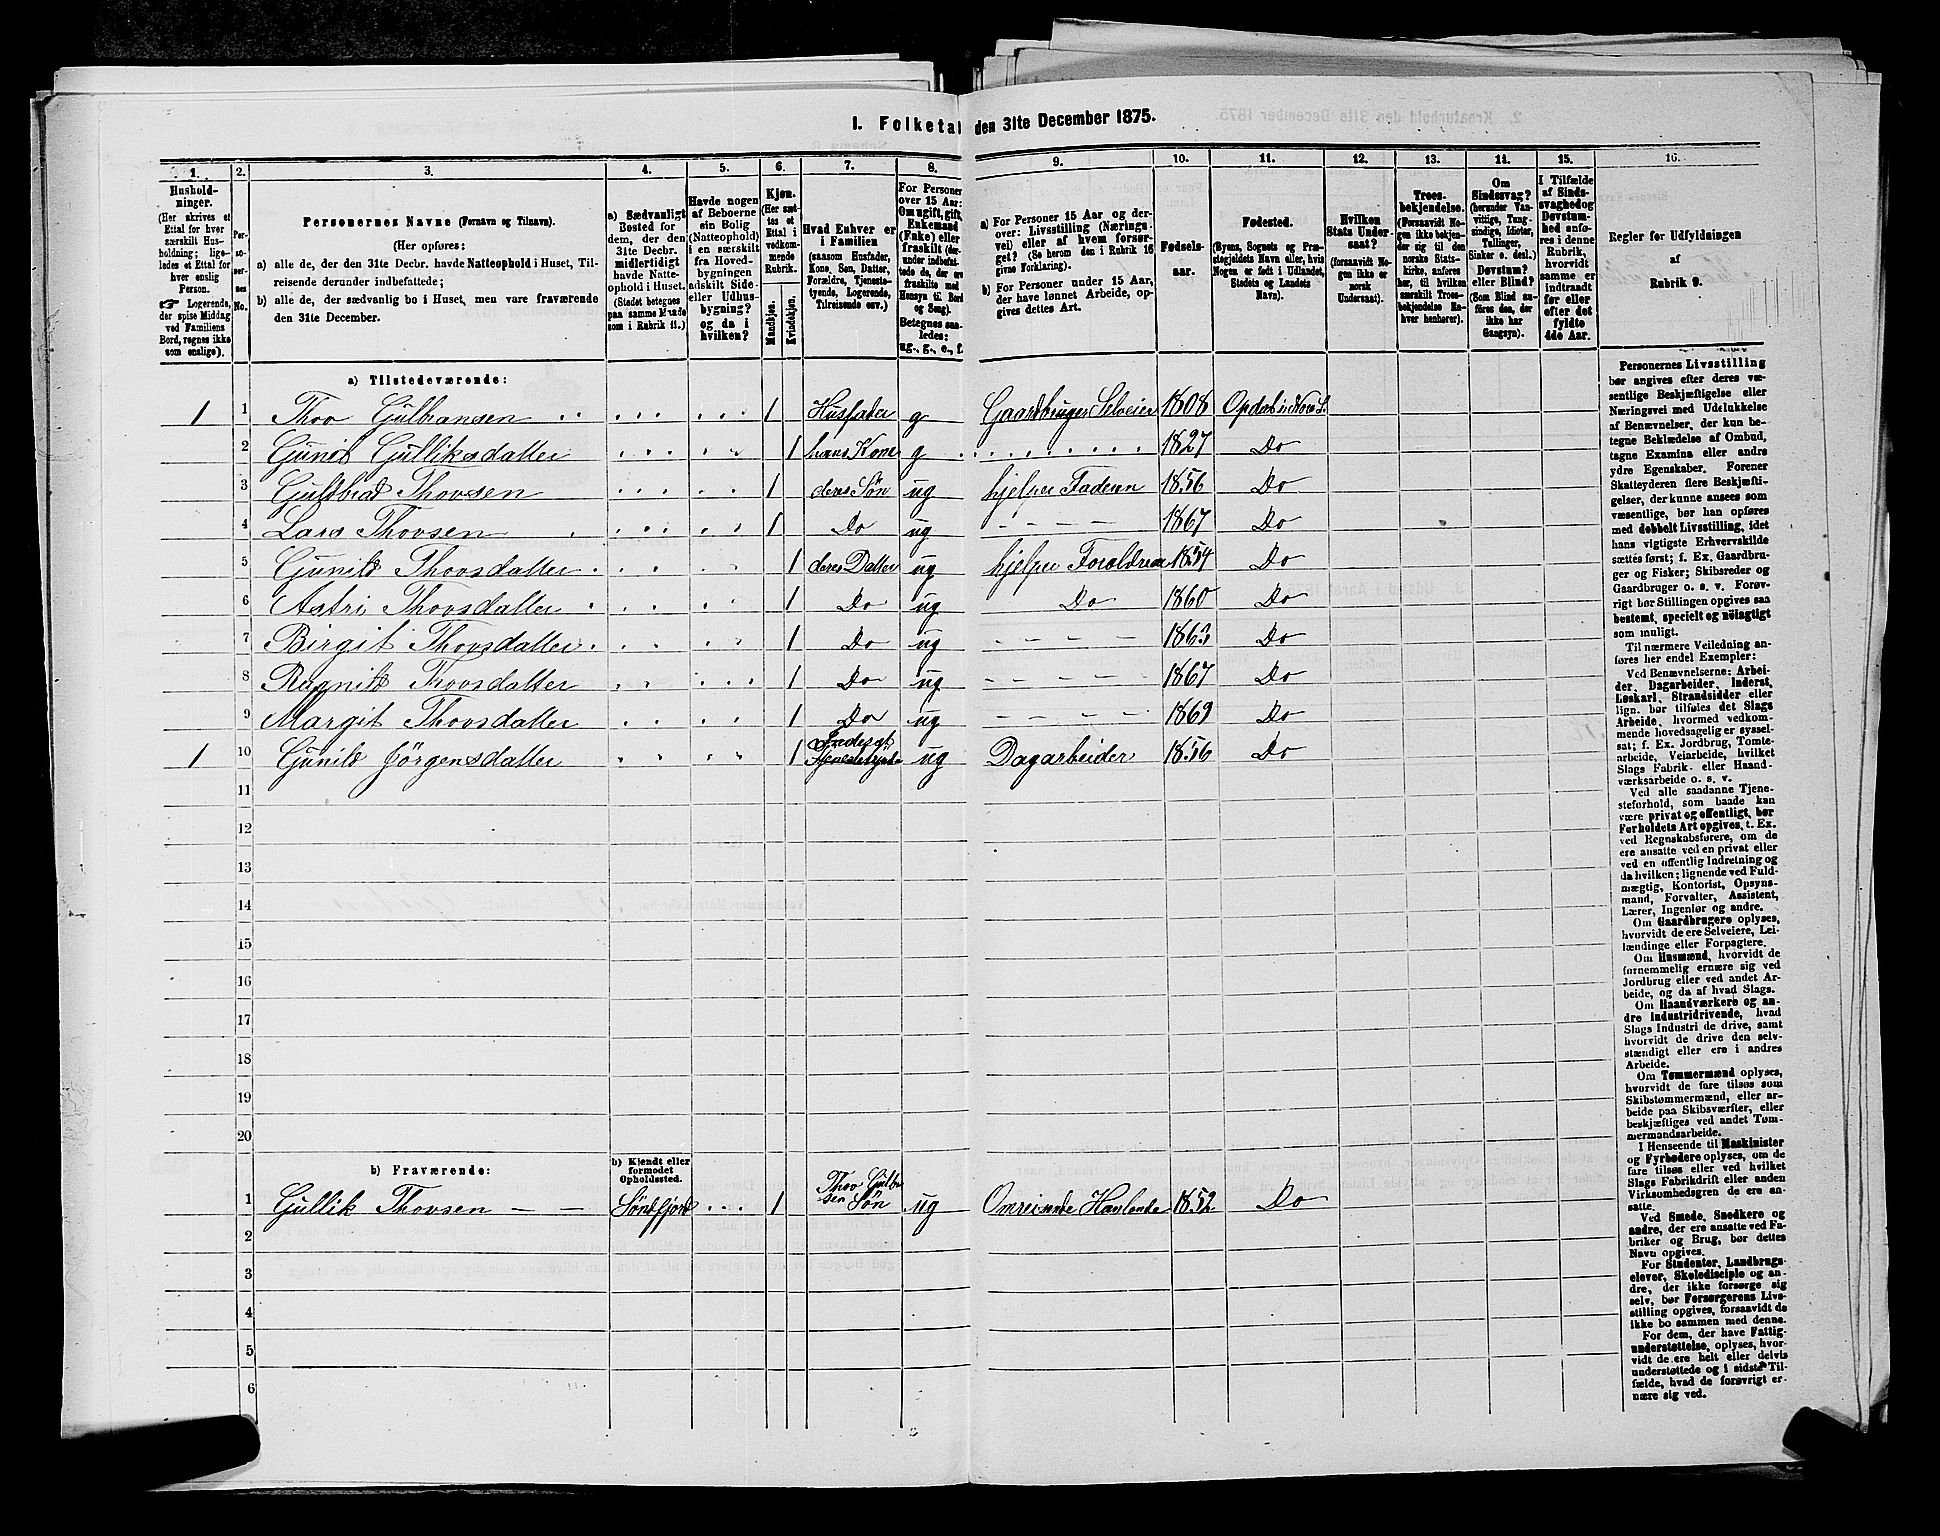 I. Folketal den 31te December 1875.
1. 2. 3. 4. 5. 6. 7. 8. 9. 10. 11. 12. 13. 14. 15. 16.
Hushold-
ninger.
(Her skrives et
Ettal for hver
særskilt Hus-
holdning; lige-
ledes et Ettal for
hver enslig
Person.
☞ Logerende,
der spise Middag
ved Familiens
Bord, regnes ikke
som enslige).
Per-
so-
ner-
nes
No.
Personernes Navne (Fornavn og Tilnavn).
(Her opføres:
a) alle de, der den 31te Decbr. havde Natteophold i Huset, Til-
reisende derunder indbefattede;
b) alle de, der sædvanlig bo i Huset, men vare fraværende
den 31te December.
a) Sædvanligt
Bosted for
dem, der den
31te Decbr.
midlertidigt
havde Natte-
ophold i Huset.
(Stedet betegnes
paa samme Maade
som i Rubrik 11.)
Havde nogen
af Beboerne
sin Bolig
(Natteophold)
i en særskilt
fra Hoved-
bygningen
adskilt Side-
eller Udhus-
bygning?
og da i
hvilken?
Kjøn.
(Her sæt-
tes et
Ettal i
vedkom-
mende
Rubrik.
Mandkjøn.
Kvindekjøn.
Hvad Enhver er
i Familien
(saasom Husfader,
Kone, Søn, Datter,
Forældre, Tjeneste-
tyende, Logerende,
Tilreisende osv.)
For Personer
over 15 Aar:
Om ugift, gift,
Enkemand
(Enke) eller
fraskilt (der-
under indbefat-
tede de, der ere
fraskilte med
Hensyn til Bord
og Seng).
Betegnes saa-
ledes:
ug., g., e., f.
a) For Personer 15 Aar og der-
over: Livsstilling (Nærings-
vei) eller af hvem forsør-
get? (Se herom den i Rubrik 16
givne Forklaring).
b) For Personer under 15 Aar,
der have lønnet Arbeide, op-
gives dettes Art.
Fødsels-
aar.
Fødested.
(Byens, Sognets og Præ-
stegjeldets Navn eller, hvis
Nogen er født i Udlandet,
Stedets og Landets
Navn).
Hvilken
Stats Under-
saat?
(forsaavidt No-
gen ikke er
norsk
Undersaat).
Troes-
bekjendelse.
(Forsaavidt No-
gen ikke bekjen-
der sig til den
norske Stats-
kirke, anføres
her, til hvilken
særskilt Troes-
bekjendelse En-
hver henhører).
Om
Sindssvag?
(herunder Van-
vittige, Tung-
sindige, Idioter,
Tullinger,
Sinker o. desl.)
Døvstum?
eller Blind?
(Som Blind an-
føres den, der
ikke har
Gangsyn).
I Tilfælde
af Sinds-
svaghed og
Døvstum-
hed anfø-
res i denne
Rubrik,
hvorvidt
samme er
indtraadt
før eller
efter det
fyldte
4de Aar.
Regler for Udfyldningen
af
Rubrik 9.
a) Tilstedeværende:
1 1 Thov Gulbransen 1 Husfader g Gaardbruger Selveier 1808
2 Gunil Gulliksdatter 1 hans Kone g 1827 Do
3 Guldbrad Thovsen 1 deres Søn ug hjelper Faderen 1856 Do
4 Lars Thovsen 1 Do ug 1867 Do
5 Gunild Thovsdatter 1 deres Datter ug hjelper Foreldrene 1854 Do
6 Astri Thovsdatter 1 Do ug Do 1860 Do
7 Birgit Thovsdatter 1 Do ug 1863 Do
8 Ragnild Thovsdatter 1 Do ug 1867 Do
9 Margit Thovsdatter 1 Do ug 1869 Do
1 10 Gunild Jörgensdatter 1 ug Dagarbeider 1856 Do
11
12
13
14
15
16
17
18
19
20
b) Fraværende:
b) Kjendt eller
formodet
Opholdssted.
1 Gullik Thovsen Söndfjord 1 Thov Gulbr
sen Søn ug Omreisende Handlende 1852 Do
2
3
4
5
6
Personernes Livsstilling
bør angives efter deres væ-
sentlige Beskjæftigelse eller
Næringsvei med Udelukkelse
af Benævnelser, der kun be-
tegne Beklædelse af Ombud,
tagne Examina eller andre
ydre Egenskaber. Forener
Skatteyderen flere Beskjæfti-
gelser, der kunne ansees som
væsentlige, bør han opføres
med dobbelt Livsstilling, idet
hans vigtigste Erhvervskilde
sættes først; f. Ex. Gaardbru-
ger og Fisker; Skibsreder og
Gaardbruger o. s. v. Forøv-
rigt bør Stillingen opgives saa
bestemt, specielt og nøiagtigt
som muligt.
Til nærmere Veiledning an-
føres her endel Exempler:
Ved Benævnelserne: Arbei-
der, Dagarbeider, Inderst,
Løskarl, Strandsidder eller
lign. bør tilføies det Slags
Arbeide, hvormed vedkom-
mende hovedsagelig er syssel-
sat; f. Ex. Jordbrug, Tomte-
arbeide, Veiarbeide, hvilket
Slags Fabrik- eller Haand-
værksarbeide o. s. v.
Ved alle saadanne Tjene-
steforhold, som baade kan
være privat og offentligt, bør
Forholdets Art opgives, t. Ex.
ved Regnskabsførere, om de
ere ansatte ved en privat eller
ved en offentlig Indretning og
da hvilken; lignende ved Fuld-
mægtig, Kontorist, Opsyns-
mand, Forvalter, Assistent,
Lærer, Ingeniør og andre.
Om Gaardbrugere oplyses,
hvorvidt de ere Selveiere, Lei-
lændinge eller Forpagtere.
Om Husmænd, hvorvidt de
fornemmelig ernære sig ved
Jordbrug eller ved andet Ar-
beide, og da af hvad Slags.
Om Haandværkere og an-
dre Industridrivende, hvad
Slags Industri de drive, samt
hvorvidt de drive den selv-
stændigt eller ere i andres
Arbeide.
Om Tømmermænd oplyses,
hvorvidt de fare tilsøs som
Skibstømmermænd, eller ar-
beide paa Skibsværfter, eller
beskjæftiges ved andet Tøm-
mermandsarbeide.
I Henseende til Maskinister
og Fyrbødere oplyses, om de
fare tilsøs eller ved hvilket
Slags Fabrikdrift eller anden
Virksomhedsgren de ere an-
satte.
Ved Smede, Snedkere og
andre, der ere ansatte ved Fa-
briker og Brug, bør dettes
Navn opgives.
For Studenter, Landbrugs-
elever, Skoledisciple og an-
dre, der ikke forsørge sig
selv, bør Forsørgerens Livs-
stilling opgives, forsaavidt de
ikke bo sammen med denne.
For dem, der have Fattig-
understøttelse, oplyses, hvor-
vidt de ere helt eller delvis
understøttede og i sidste Til-
fælde, hvad de forøvrigt er-
nære sig ved.